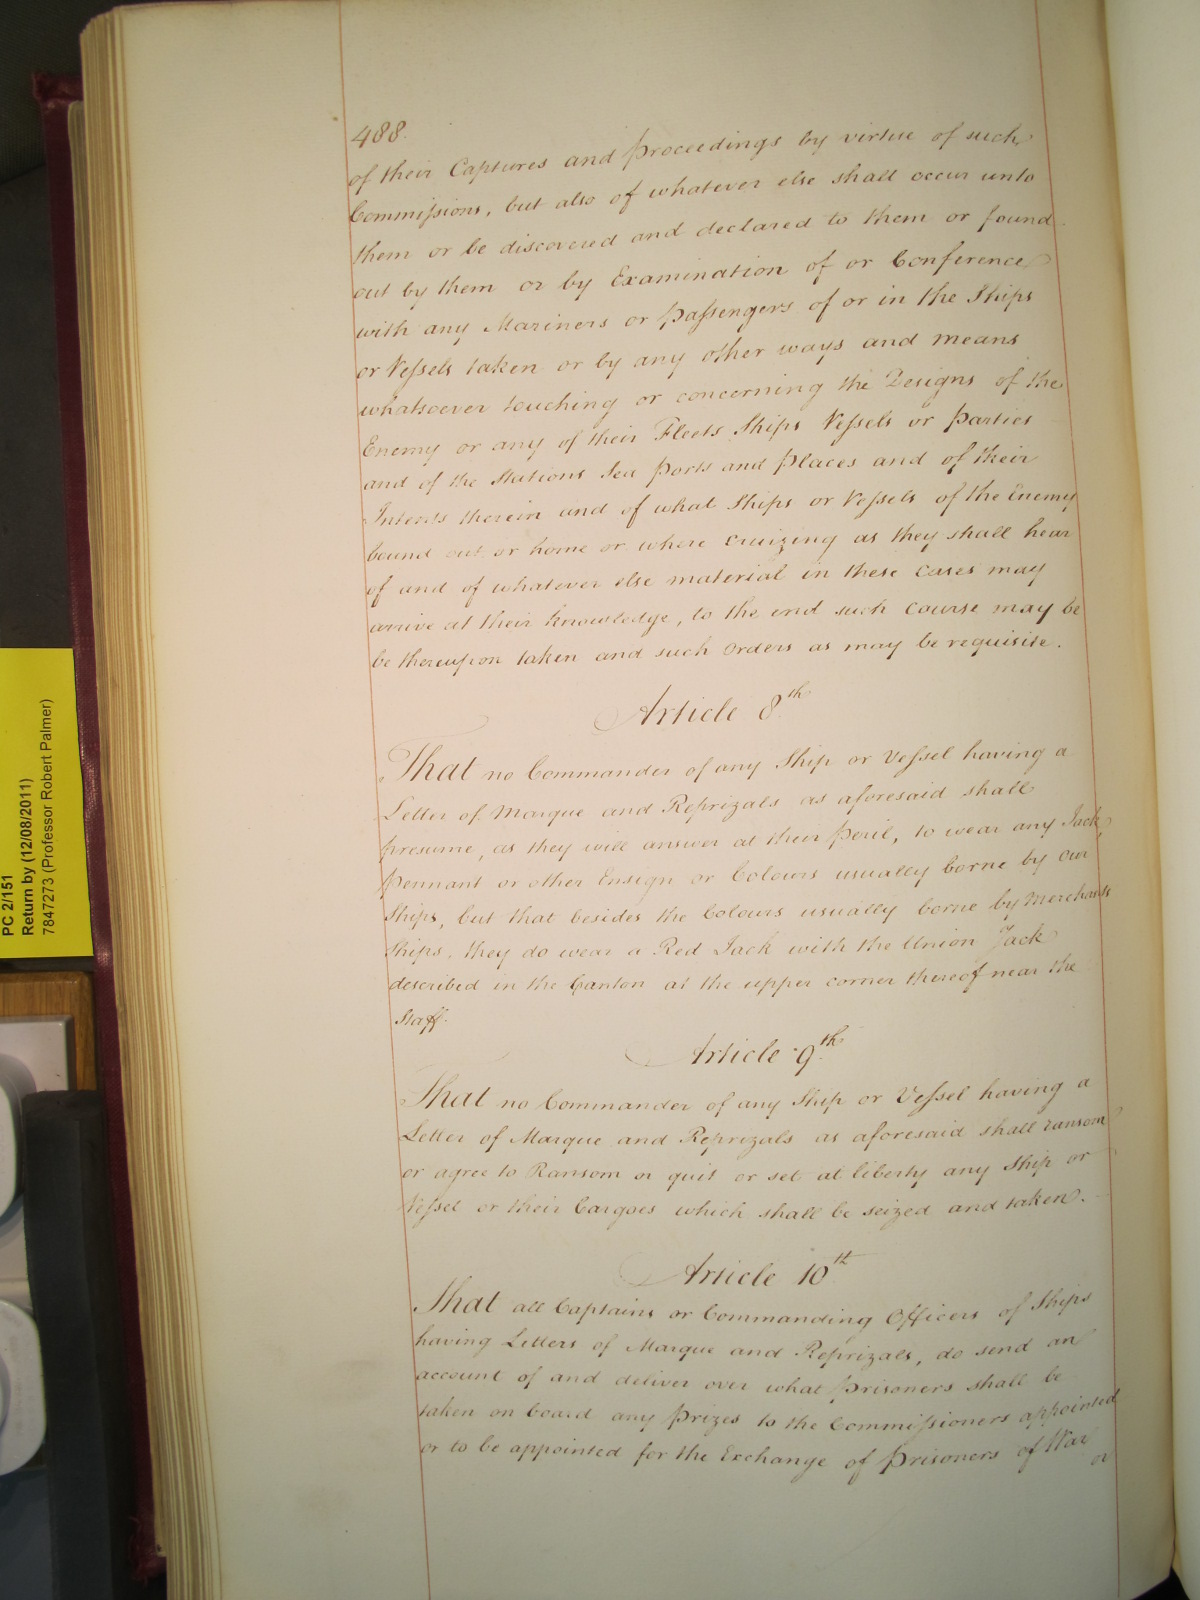 488.
of their Captures and proceedings by virtue of such
Commissions, but also of whatever else shall occur unto
them or be discovered and declared to them or found
out by them or by Examination of or Conference
with any Mariners or passengers of or in the Ships
or Vessels taken or by any other ways and means
whatsoever touching or concerning the Designs of the
Enemy or any of their Fleets Ships Vessels or parties
and of the Stations Sea ports and places and of their
Intents therein and of what Ships or Vessels of the Enemy
bound out or home or where cruizing as they shall hear
of and of whatever else material in these Cases may
arrive at their knowledge, to the end such course may be
be thereupon taken and such orders as may be requisite.
Article 8th
That no Commander of any Ship or Vessel having a
Letter of Marque and Reprizals as aforesaid shall
presume, as they will answer at their peril, to wear any Jack,
pennant or other Ensign or Colours usually borne by our
Ships, but that besides the Colours usually borne by Merchants
Ships, they do wear a Red Jack with the Union Jack
described in the Canton at the upper corner thereof near the
Staff.
Article 9th
That no Commander of any Ship or Vessel having a
Letter of Marque and Reprizals as aforesaid shall ransom
or agree to Ransom or quit or set at liberty any Ship or
Vessel or their Cargoes which shall be seized and taken.
Article 10th
That all Captains or Commanding Officers of Ships
having Letters of Marque and Reprizals, do send an
account of and deliver over what prisoners shall be
taken on board any prizes to the Commissioners appointed
or to be appointed for the Exchange of prisoners of War
or
PC 2/151
Return by (12/08/2011)
7847273 (Professor Robert Palmer)